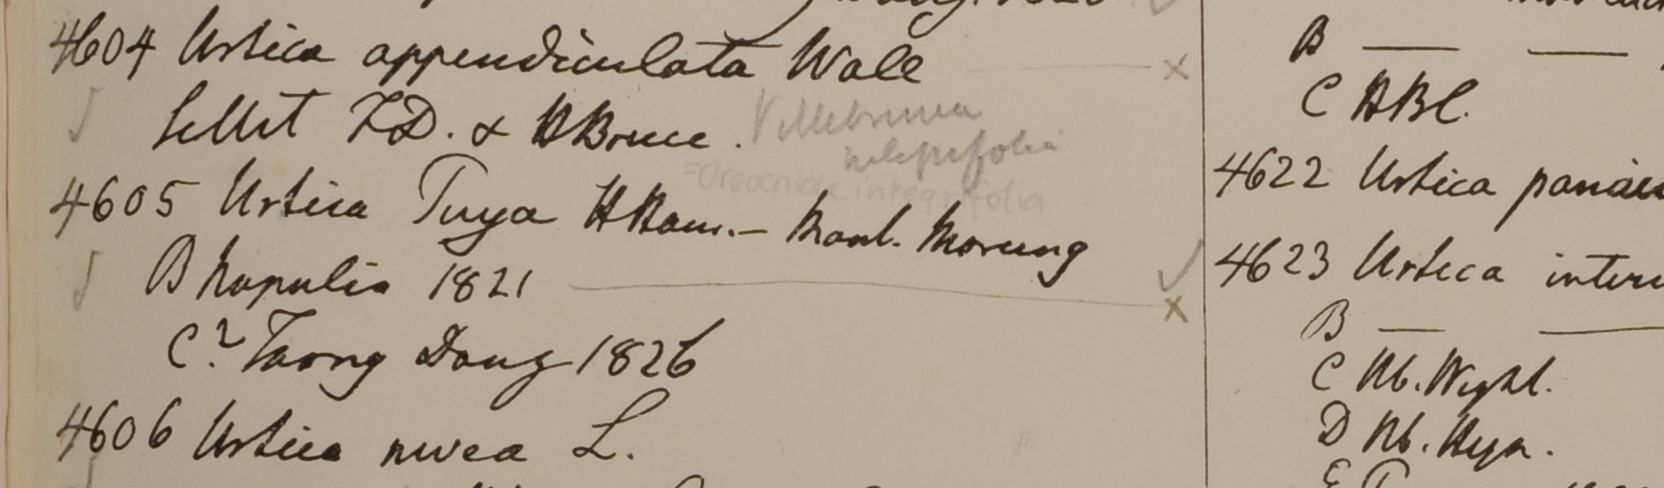 4604 Urtica appendiculata Wall
Sillet F.D. & HBruce. Villebrunea
integrifolia
=Oreocnide integrifolia
4605 Urtica Puya HHam. - Morung
B Napalia 1821
C? Taong Dong 1826
4606 Urtica nivea L.
B
C HBC.
4622 Urtica
4623 Urtica
B
C Hb. Wight.
D Hb. Heyn.
E